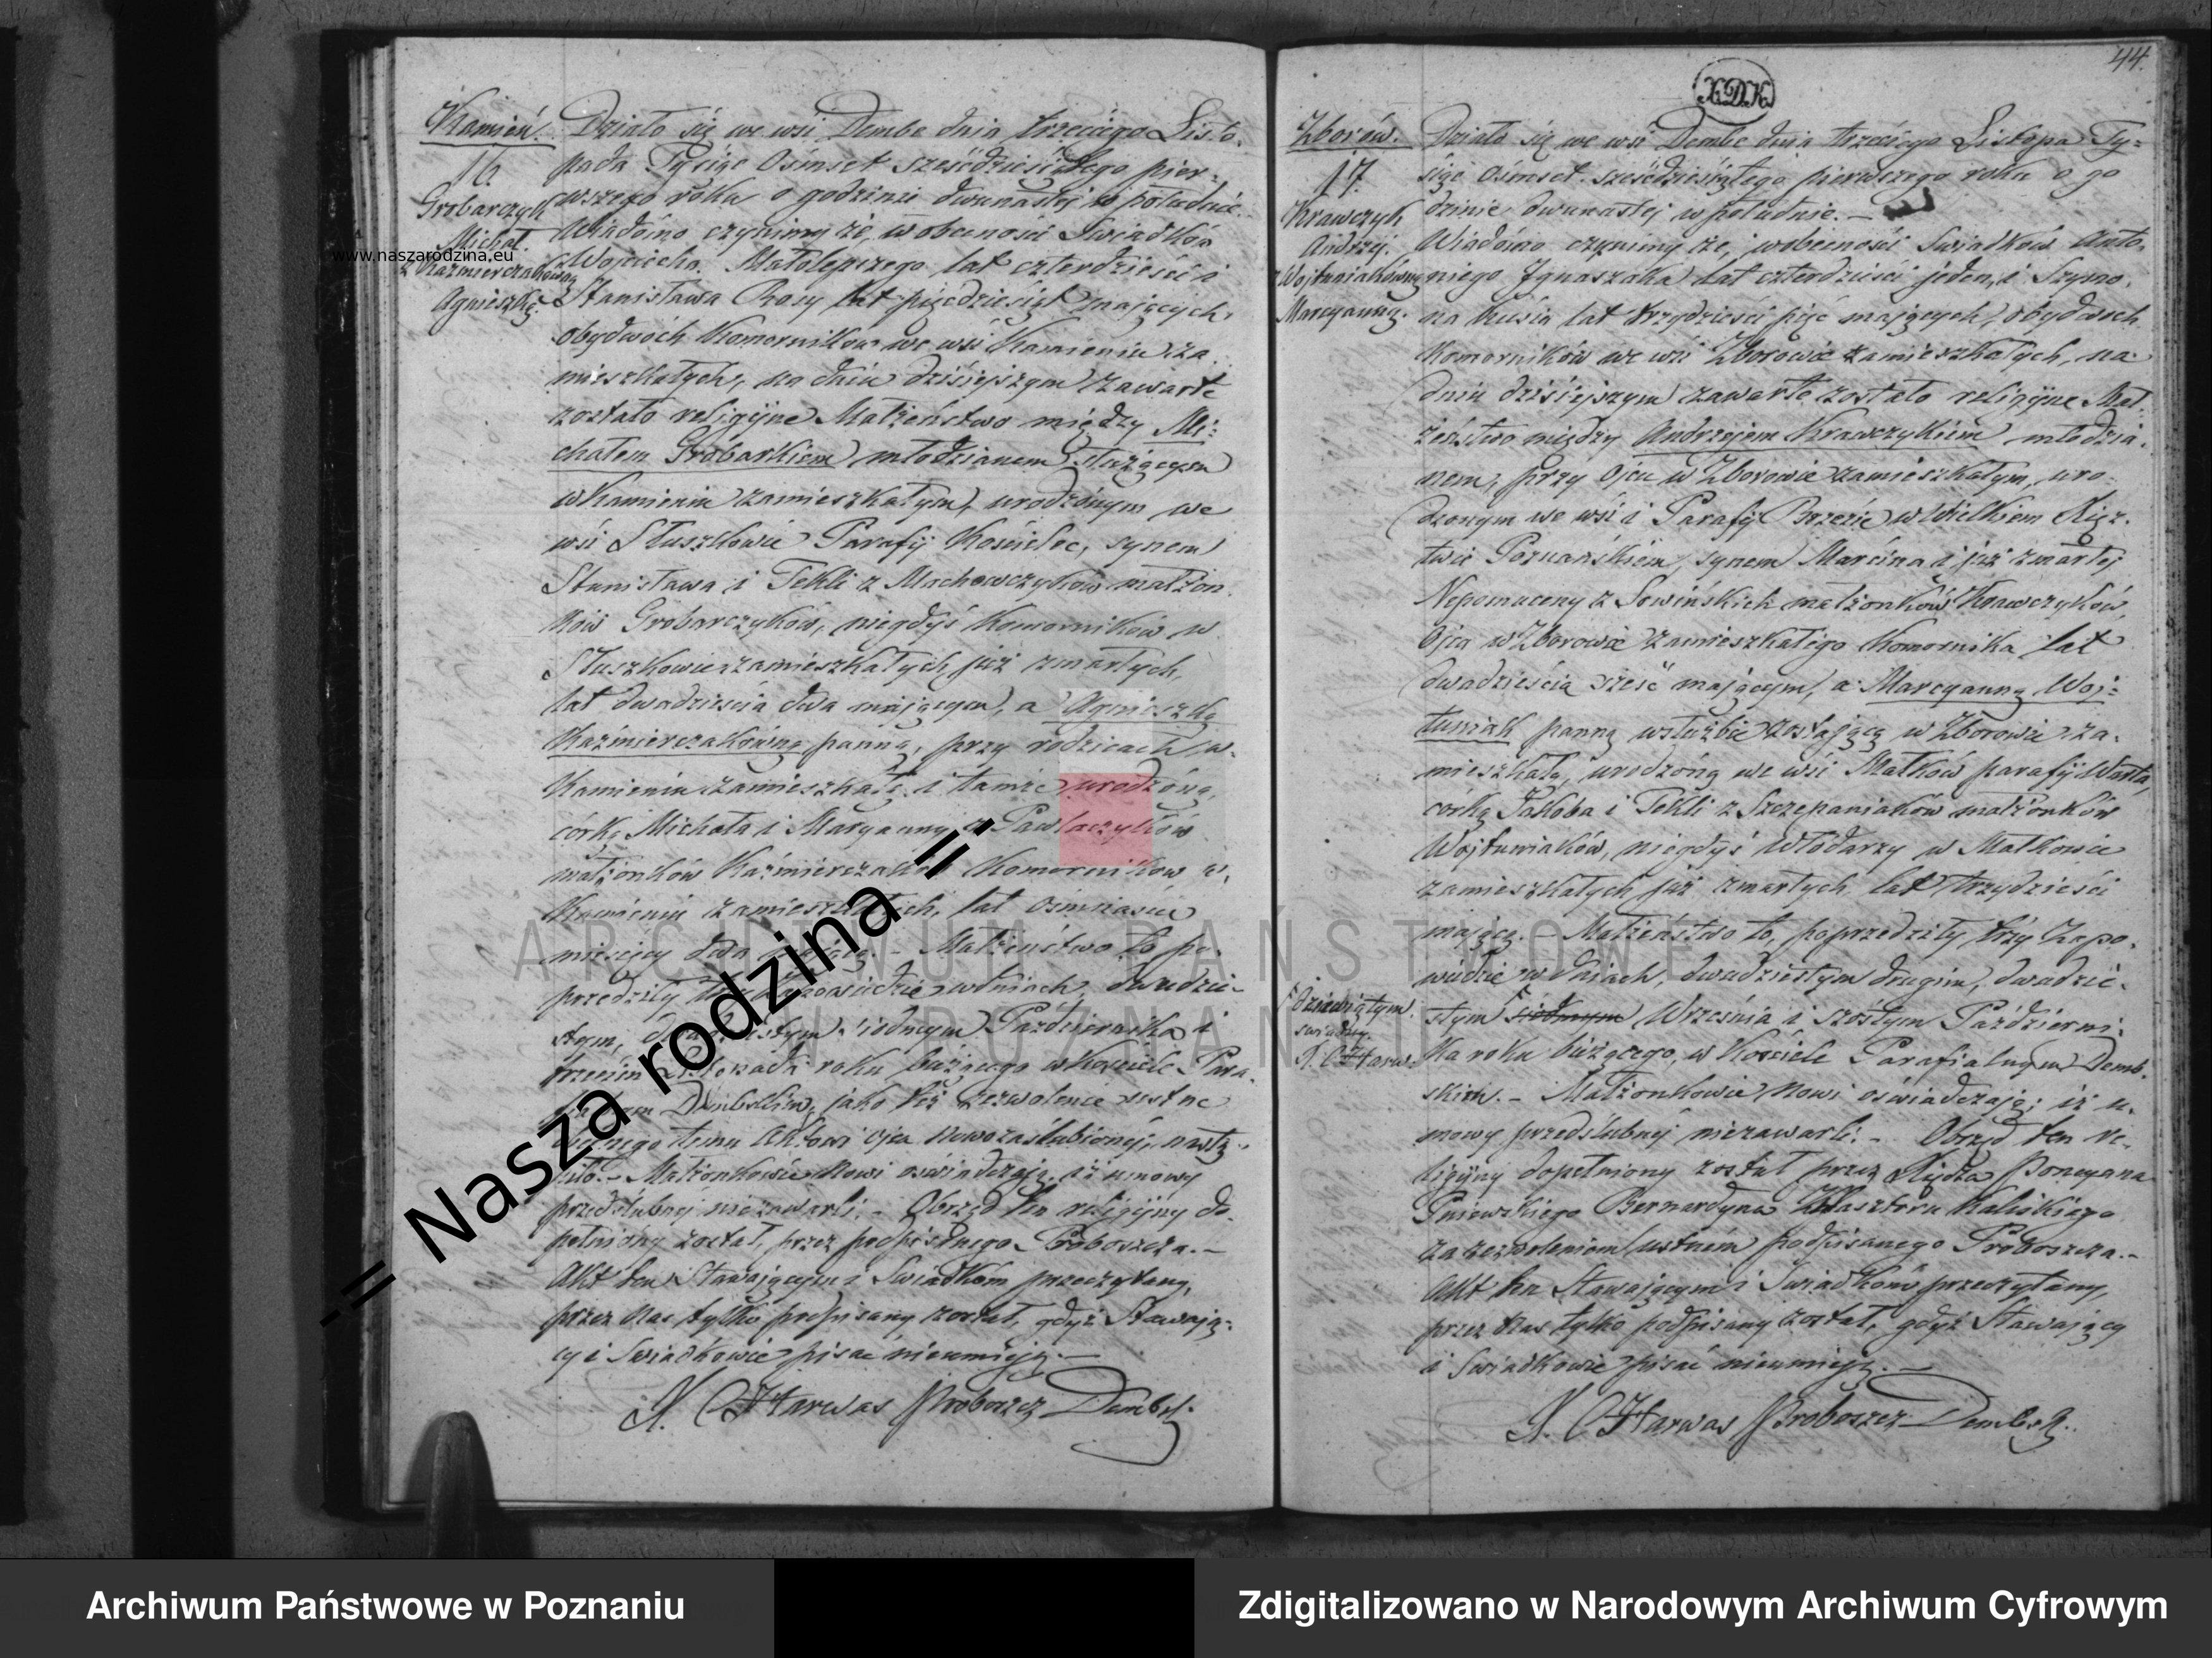 Kamień.
16.
Grobarczyk
Michał.
z Kaźmierczakówną
Agnieszką.
Działo się we wsi Dembe dnia trzeciego Listo-
pada Tysiąc Ośmset sześćdziesiątego pier-
wszego roku o godzinie dwunastej w południe.
Wiadomo czynimy że, w obecności Świadków
Wojciecha Małolepszego lat czterdzieści i
Stanisława Rosy lat pięćdziesiąt mających,
obydwóch Komorników we wsi Kamieniu za-
mieszkałych, na dniu dzisiejszym zawarte
zostało religijne Małżeństwo między Mi-
chałem Grobarkiem młodzianem służącym
w Kamieniu zamieszkałym, urodzonym we
wsi Tłuszkowie Parafij Kościelec, synem
Stanisława i Tekli z Mochowczyków małżon-
ków Grobarczyków, niegdyś Komorników w
Tłuszkowie zamieszkałych już zmarłych,
lat dwadzieścia dwa mającym, a Agnieszką
Kaźmierczakówną panną, przy rodzicach w
Kamieniu zamieszkałą i tamże urodzoną,
córką Michała i Maryanny z Pawlaczyków
małżonków Kaźmierczaków Komorników w
Kamieniu zamieszkałych, lat Ośmnaście
miesięcy dwa mającą. - Małżeństwo to po-
przedziły trzy zapowiedzie w dniach dwudzie-
stym, dwudziestym siódmym Października i
trzecim Listopada roku bieżącego w Kościele Para-
fialnym Dembskim, jako też zezwolenie ustne
obecnego temu Aktowi ojca Nowozaślubionej, nastą-
piło. - Małżonkowie Nowi oświadczają, iż umowy
przedślubnej niezawarli. - Obrzęd ten religijny do-
pełniony został, przez podpisanego Proboszcza. -
Akt ten Stawającym i Świadkom przeczytany,
przez Nas tylko podpisany został, gdyż Stawają-
cy i Świadkowie pisać nieumieją. -
X. C Harwas Proboszcz Dembsk.
44.
XDK
Zborów.
17.
Krawczyk
Andrzej.
z Wojtuniakówną
Marcyanną.
Działo się we wsi Dembe dnia trzeciego Listopa Ty-
siąc Ośmset sześćdziesiątego pierwszego roku o go
dzinie dwunastej w południe. -
Wiadomo czynimy że, w obecności Świadków Anto-
niego Ignaszaka lat czterdzieści jeden, i Szymo-
na Kusia lat trzydzieści pięć mających, obydwóch
Komorników we wsi Zborowie zamieszkałych, na
dniu dzisiejszym zawarte zostało religijne Mał-
żeństwo między Andrzejem Krawczykiem młodzia-
nem, przy Ojcu w Zborowie zamieszkałym, uro-
dzonym we wsi i Parafij Brzezie w Wielkiem Księz-
twie Poznańskiem, synem Marcina i już zmarłej
Nepomuceny z Sowińskich małżonków Krawczyków
Ojca w Zborowie zamieszkałego Komornika lat
dwadzieścia sześć mającym, a Marcyanną Woj-
tuniak panną w służbie zostającą w Zborowie za-
mieszkałą, urodzoną we wsi Małków parafij Warta,
córką Jakóba i Tekli z Szczepaniaków małżonków
Wojtuniaków, niegdyś Włódarzy w Małkowie
zamieszkałych już zmarłych lat trzydzieści
mającą. - Małżeństwo to, poprzedziły trzy Zapo-
wiedzie w dniach, dwudziestym drugim, dwudzie-
dziewiątym
świadczy
X. C Harw.
stym siódmym Września i szóstym Październi-
ka roku bieżącego, w Kościele Parafialnym Demb-
skim. - Małżonkowie Nowi oświadczają: iż u-
mowy przedślubnej niezawarli. - Obrzęd ten re-
ligijny dopełniony został przez Księdza Poncyana
Pniewskiego Bernardyna Klasztoru Kaliskiego
za zezwoleniem ustnem podpisanego Proboszcza. -
Akt ten Stawającym i Świadkom przeczytany,
przez Nas tylko podpisany został, gdyż Stawający
i Świadkowie pisać nieumieją. -
X. C Harwas Proboszcz Dembsk.
www.naszarodzina.eu
-= Nasza rodzina =-
ARCHIWUM PAŃSTWOWE
W POZNANIU
Archiwum Państwowe w Poznaniu
Zdigitalizowano w Narodowym Archiwum Cyfrowym